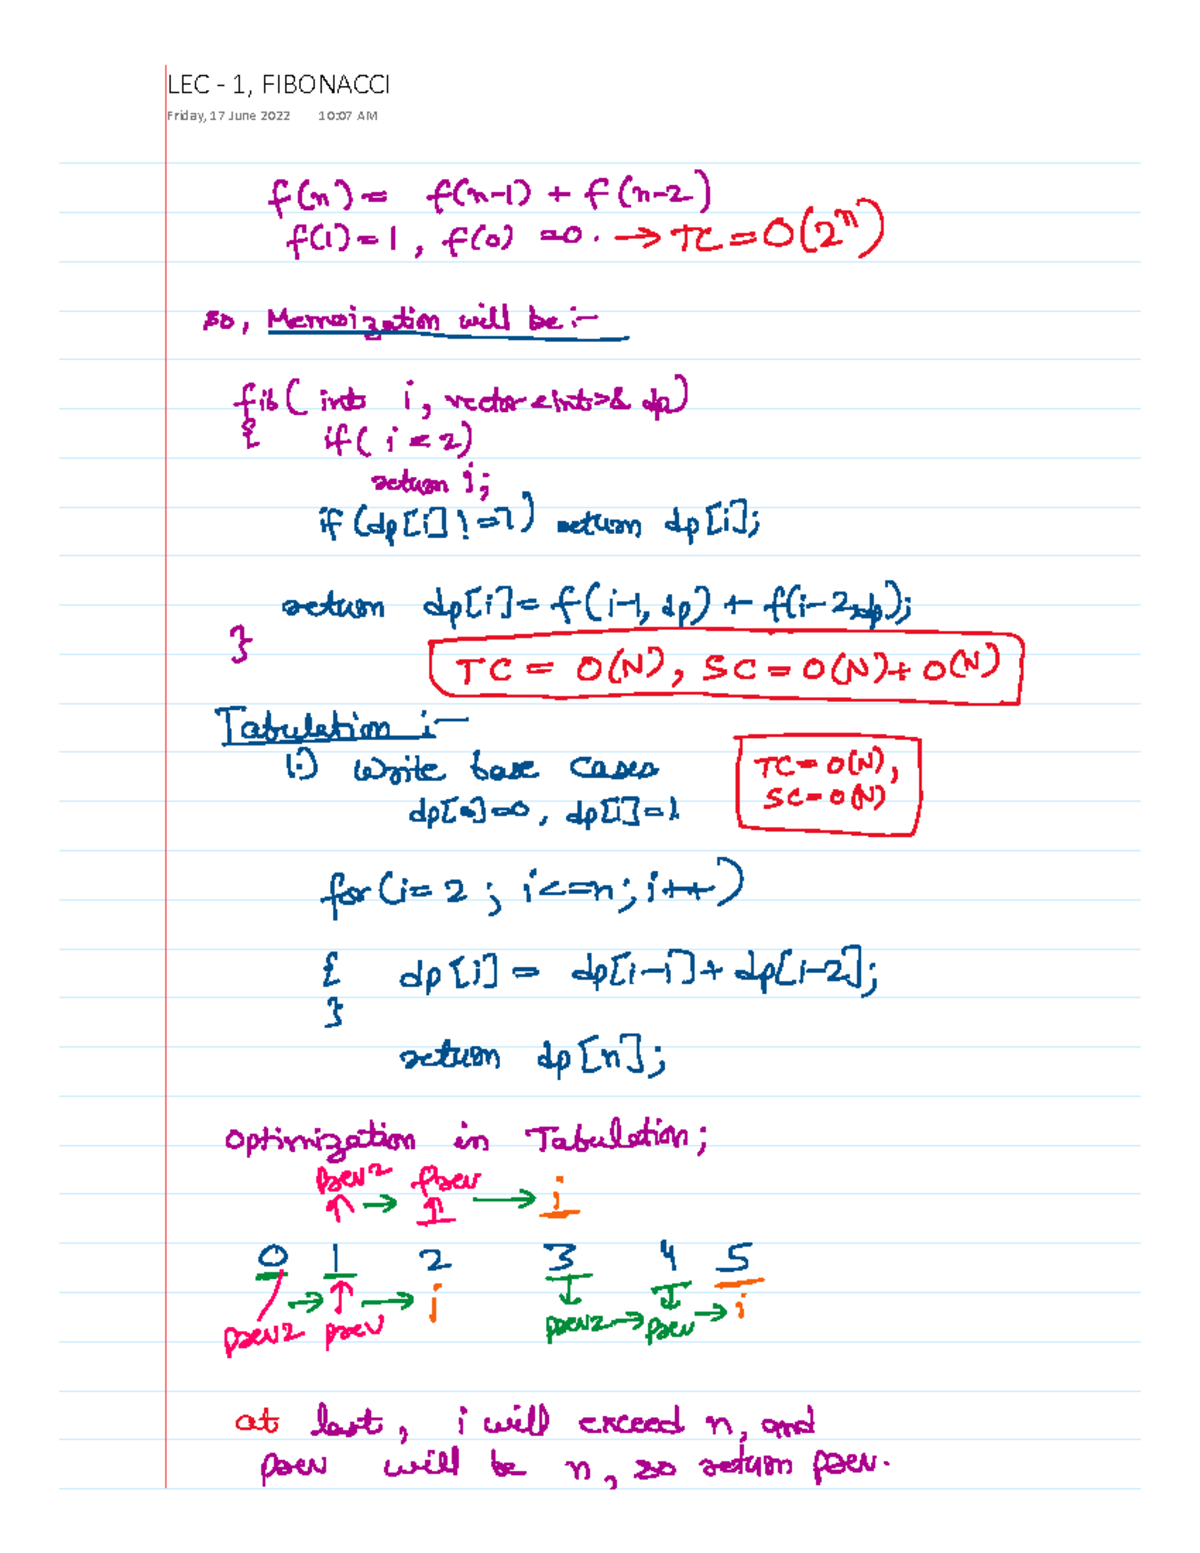 LEC - 1, FIBONACCI
Friday, 17 June 2022 10:07 AM
f(n) = f(n-1) + f(n-2)
f(1) = 1, f(0) = 0. → TC = O(2^n)
so, Memoization will be :-
fib( int i, vector<int>& dp)
{ if( i < 2)
return i;
if (dp[i] != -1) return dp[i];
return dp[i] = f(i-1, dp) + f(i-2, dp);
}
TC = O(N), SC = O(N) + O(N)
Tabulation :-
1.) Write base cases
TC = O(N),
SC = O(N)
dp[0]=0, dp[1]=1
for(i=2; i<=n; i++)
{ dp[i] = dp[i-1] + dp[i-2];
}
return dp[n];
Optimization in Tabulation;
prev2 prev
↑ → ↑ → i
0 1 2 3 4 5
→ ↑ → i ↓ ↓
prev2 prev prev2 → prev → i
at last, i will exceed n, and
prev will be n, so return prev.